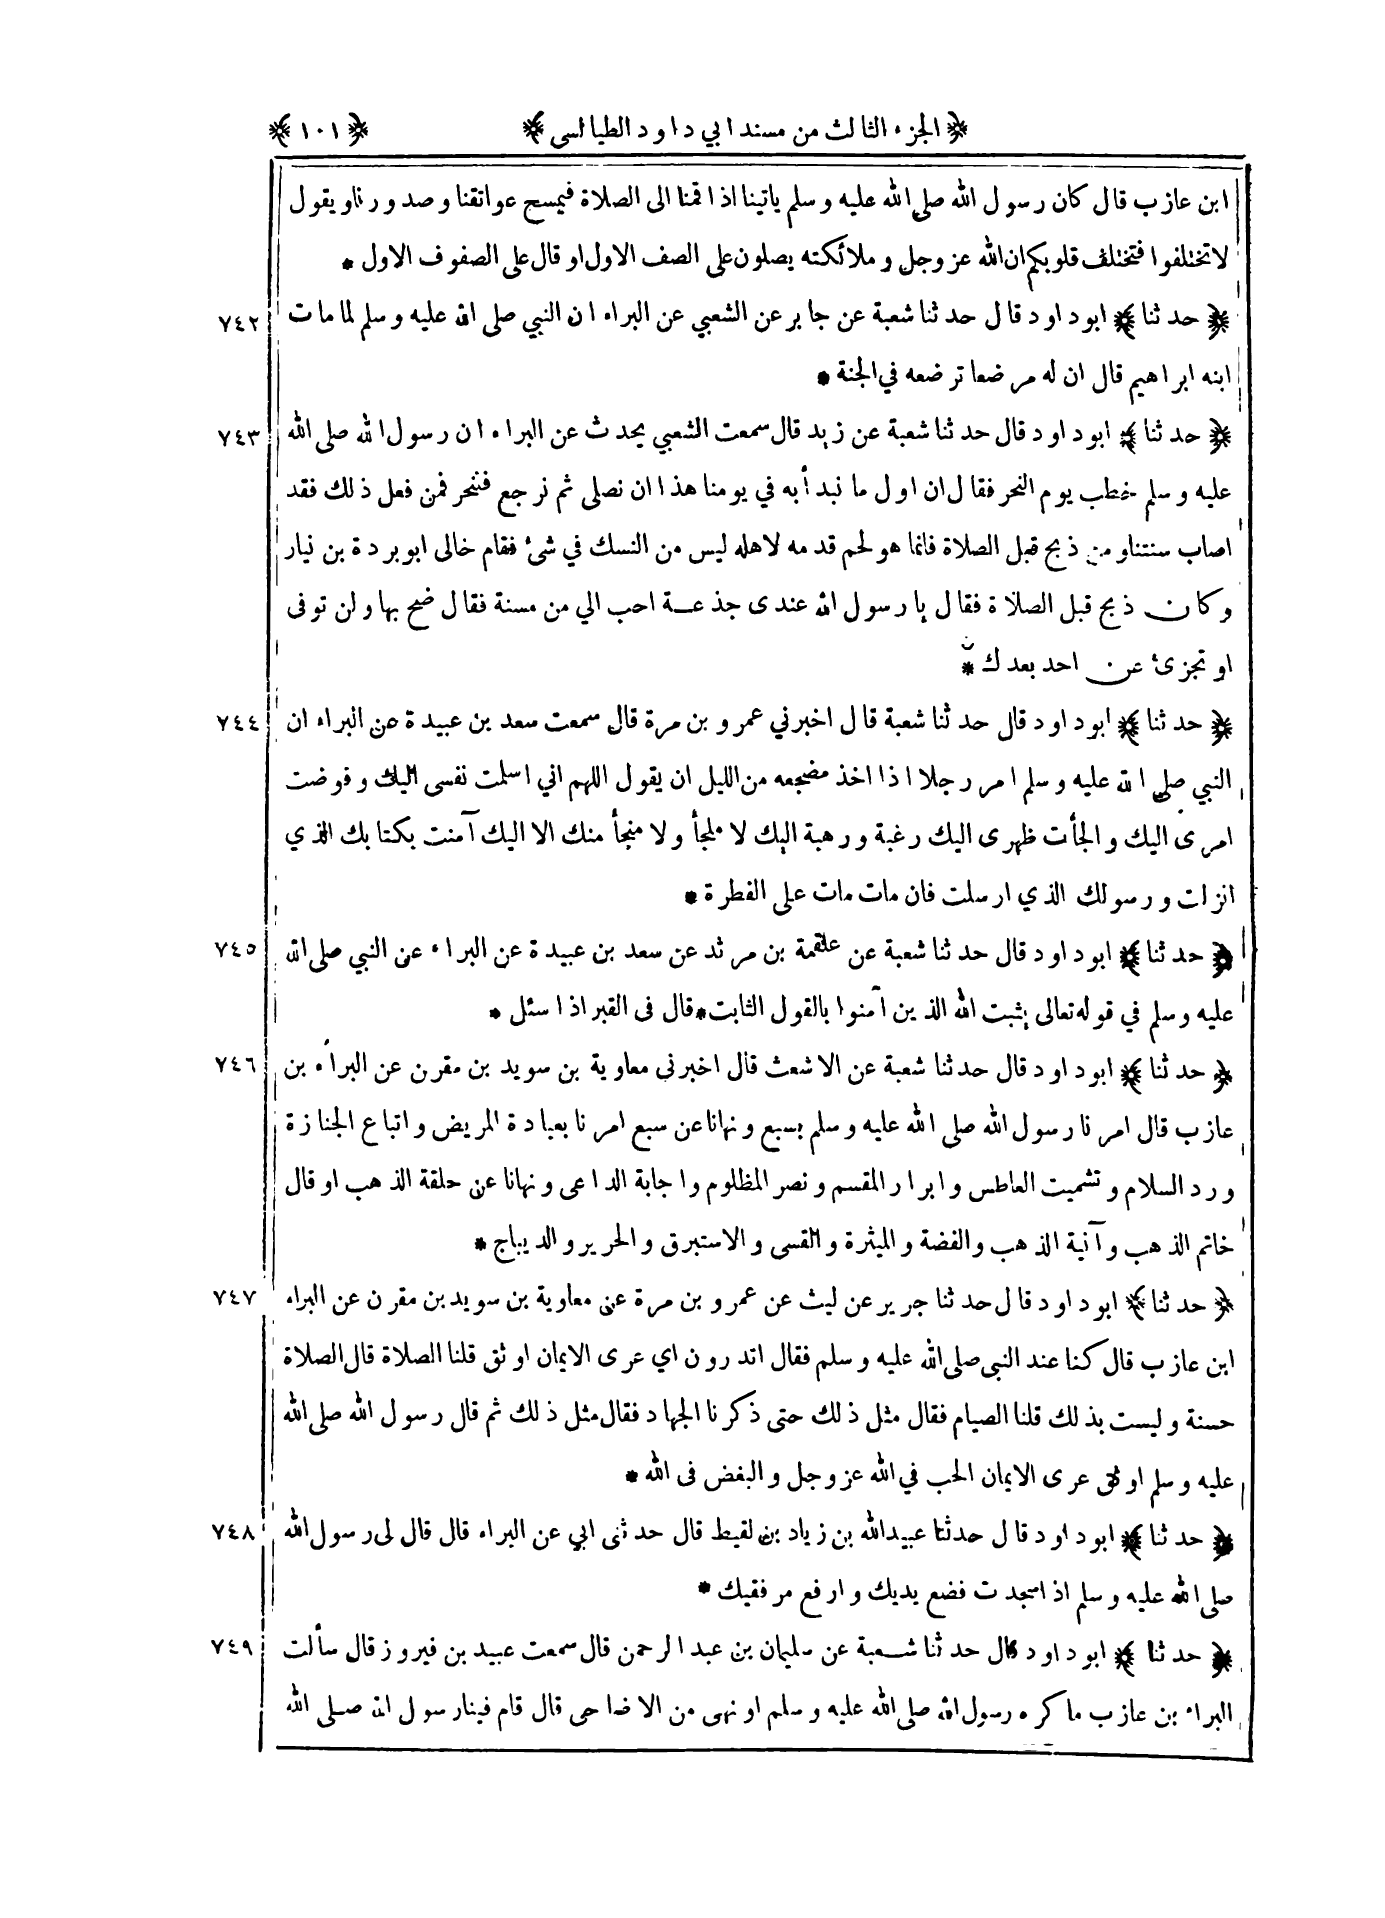 ﴿ الجزء الثالث من مسند ابي داود الطيالسى ﴾ ﴿ ١٠١ ﴾
ابن عازب قال كان رسول الله صلى الله عليه وسلم ياتينا اذا قمنا الى الصلاة فيمسح عواتقنا وصدورنا ويقول
لا تختلفوا فتختلف قلوبكم ان الله عز وجل وملائكته يصلون على الصف الاول او قال على الصفوف الاول *
﴿ حدثنا ﴾ ابوداود قال حدثنا شعبة عن جابر عن الشعبي عن البراء ان النبي صلى الله عليه وسلم لما مات ٧٤٢
ابنه ابراهيم قال ان له مرضعا ترضعه في الجنة *
﴿ حدثنا ﴾ ابوداود قال حدثنا شعبة عن زبيد قال سمعت الشعبي يحدث عن البراء ان رسول الله صلى الله ٧٤٣
عليه وسلم خطب يوم النحر فقال ان اول ما نبدأ به في يومنا هذا ان نصلى ثم نرجع فننحر فمن فعل ذلك فقد
اصاب سنتنا ومن ذبح قبل الصلاة فانما هو لحم قدمه لاهله ليس من النسك في شئ فقام خالى ابو بردة بن نيار
وكان ذبح قبل الصلاة فقال يا رسول الله عندى جذعة احب الي من مسنة فقال ضح بها ولن توفى
او تجزئ عن احد بعدك * ن
﴿ حدثنا ﴾ ابوداود قال حدثنا شعبة قال اخبرني عمرو بن مرة قال سمعت سعد بن عبيدة عن البراء ان ٧٤٤
النبي صلى الله عليه وسلم امر رجلا اذا اخذ مضجعه من الليل ان يقول اللهم اني اسلمت نفسى اليك وفوضت
امرى اليك والجأت ظهرى اليك رغبة ورهبة اليك لا ملجأ ولا منجأ منك الا اليك آمنت بكتابك الذي
انزلت ورسولك الذي ارسلت فان مات مات على الفطرة *
﴿ حدثنا ﴾ ابوداود قال حدثنا شعبة عن علقمة بن مرثد عن سعد بن عبيدة عن البراء عن النبي صلى الله ٧٤٥
عليه وسلم في قوله تعالى يثبت الله الذين آمنوا بالقول الثابت * قال فى القبر اذا سئل *
﴿ حدثنا ﴾ ابوداود قال حدثنا شعبة عن الاشعث قال اخبرنى معاوية بن سويد بن مقرن عن البراء بن ٧٤٦
عازب قال امرنا رسول الله صلى الله عليه وسلم بسبع ونهانا عن سبع امرنا بعيادة المريض واتباع الجنازة
ورد السلام وتشميت العاطس وابرار المقسم ونصر المظلوم واجابة الداعى ونهانا عن حلقة الذهب او قال
خاتم الذهب وآنية الذهب والفضة والميثرة والقسى والاستبرق والحرير والديباج *
﴿ حدثنا ﴾ ابوداود قال حدثنا جرير عن ليث عن عمرو بن مرة عن معاوية بن سويد بن مقرن عن البراء ٧٤٧
ابن عازب قال كنا عند النبى صلى الله عليه وسلم فقال اتدرون اي عرى الايمان اوثق قلنا الصلاة قال الصلاة
حسنة وليست بذلك قلنا الصيام فقال مثل ذلك حتى ذكرنا الجهاد فقال مثل ذلك ثم قال رسول الله صلى الله
عليه وسلم اوثق عرى الايمان الحب في الله عز وجل والبغض فى الله *
﴿ حدثنا ﴾ ابوداود قال حدثنا عبيدالله بن زياد بن لقيط قال حدثنى ابي عن البراء قال قال لى رسول الله ٧٤٨
صلى الله عليه وسلم اذا سجدت فضع يديك وارفع مرفقيك *
﴿ حدثنا ﴾ ابوداود قال حدثنا شعبة عن سليمان بن عبد الرحمن قال سمعت عبيد بن فيروز قال سألت ٧٤٩
البراء بن عازب ما كره رسول الله صلى الله عليه وسلم او نهى من الاضاحى قال قام فينا رسول الله صلى الله